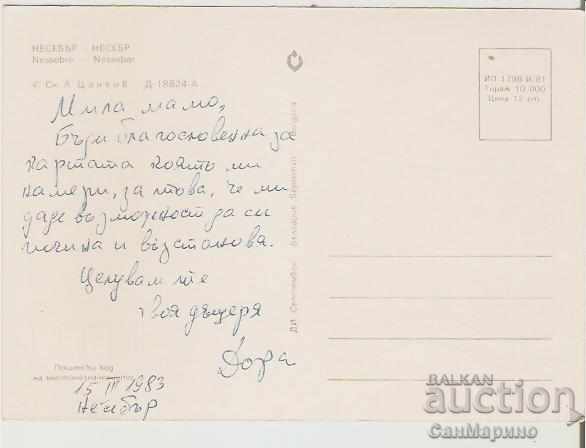 НЕСЕБЪР — НЕСЕБР
Nessebre — Nessebar
© Ск. А. Д-18824-А
Мила мамо,
Бъди благословенна за
картата която ми
намери, за това, че ми
даде възможност да си
почина и възстановя.
Целувам те
твоя дъщеря
Дора
Пощенски код
на местоназначението
15 III 1983
Несебър
ДИ „Септември“ България
ИП 1798 И/81
Тираж 10 000
Цена 12 ст.
BALKAN
auction
СанМарино